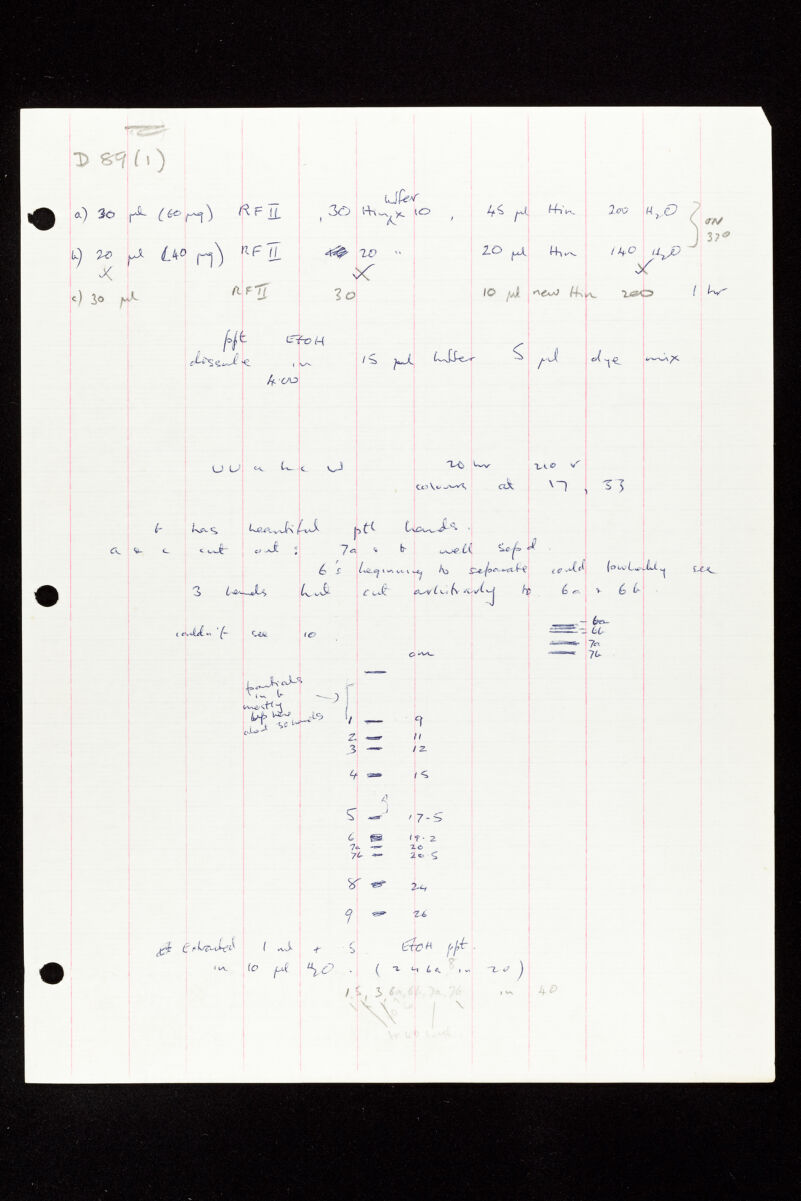 D 89 (1)
buffer
a) 30 µl (60 µg) RF II , 30 Hin x 10 , 45 µl Hin 200 H2O
ON
37°
b) 20 µl (40 µg) RF II 20 " 20 µl Hin 140 H2O
c) 30 µl RF II 30 10 µl new Hin 200 1 hr
ppt EtOH
dissolve in 15 µl buffer 5 µl dye mix
4.00
U U a b c U 20 hr 210 v
colours at 17, 33
b has beautiful ptl bands.
a & c cut out : 7a & b well sepd.
6's beginning to separate could probably see
3 bands but cut arbitrarily to 6a & 6b.
couldn't see 10.
6a
6b
7a
7b
cm
partials
in b
mostly
between
about 30 bands
1 9
2 11
3 12
4 15
5 17.5
6 19.2
7a 20
7b 20.5
8 24
9 26
Extracted 1 ml + .5 EtOH ppt.
in 10 µl H2O . (2 4 6a 8 in 20)
1, 5, 3, 6a, 6b, 7a, 7b in 40